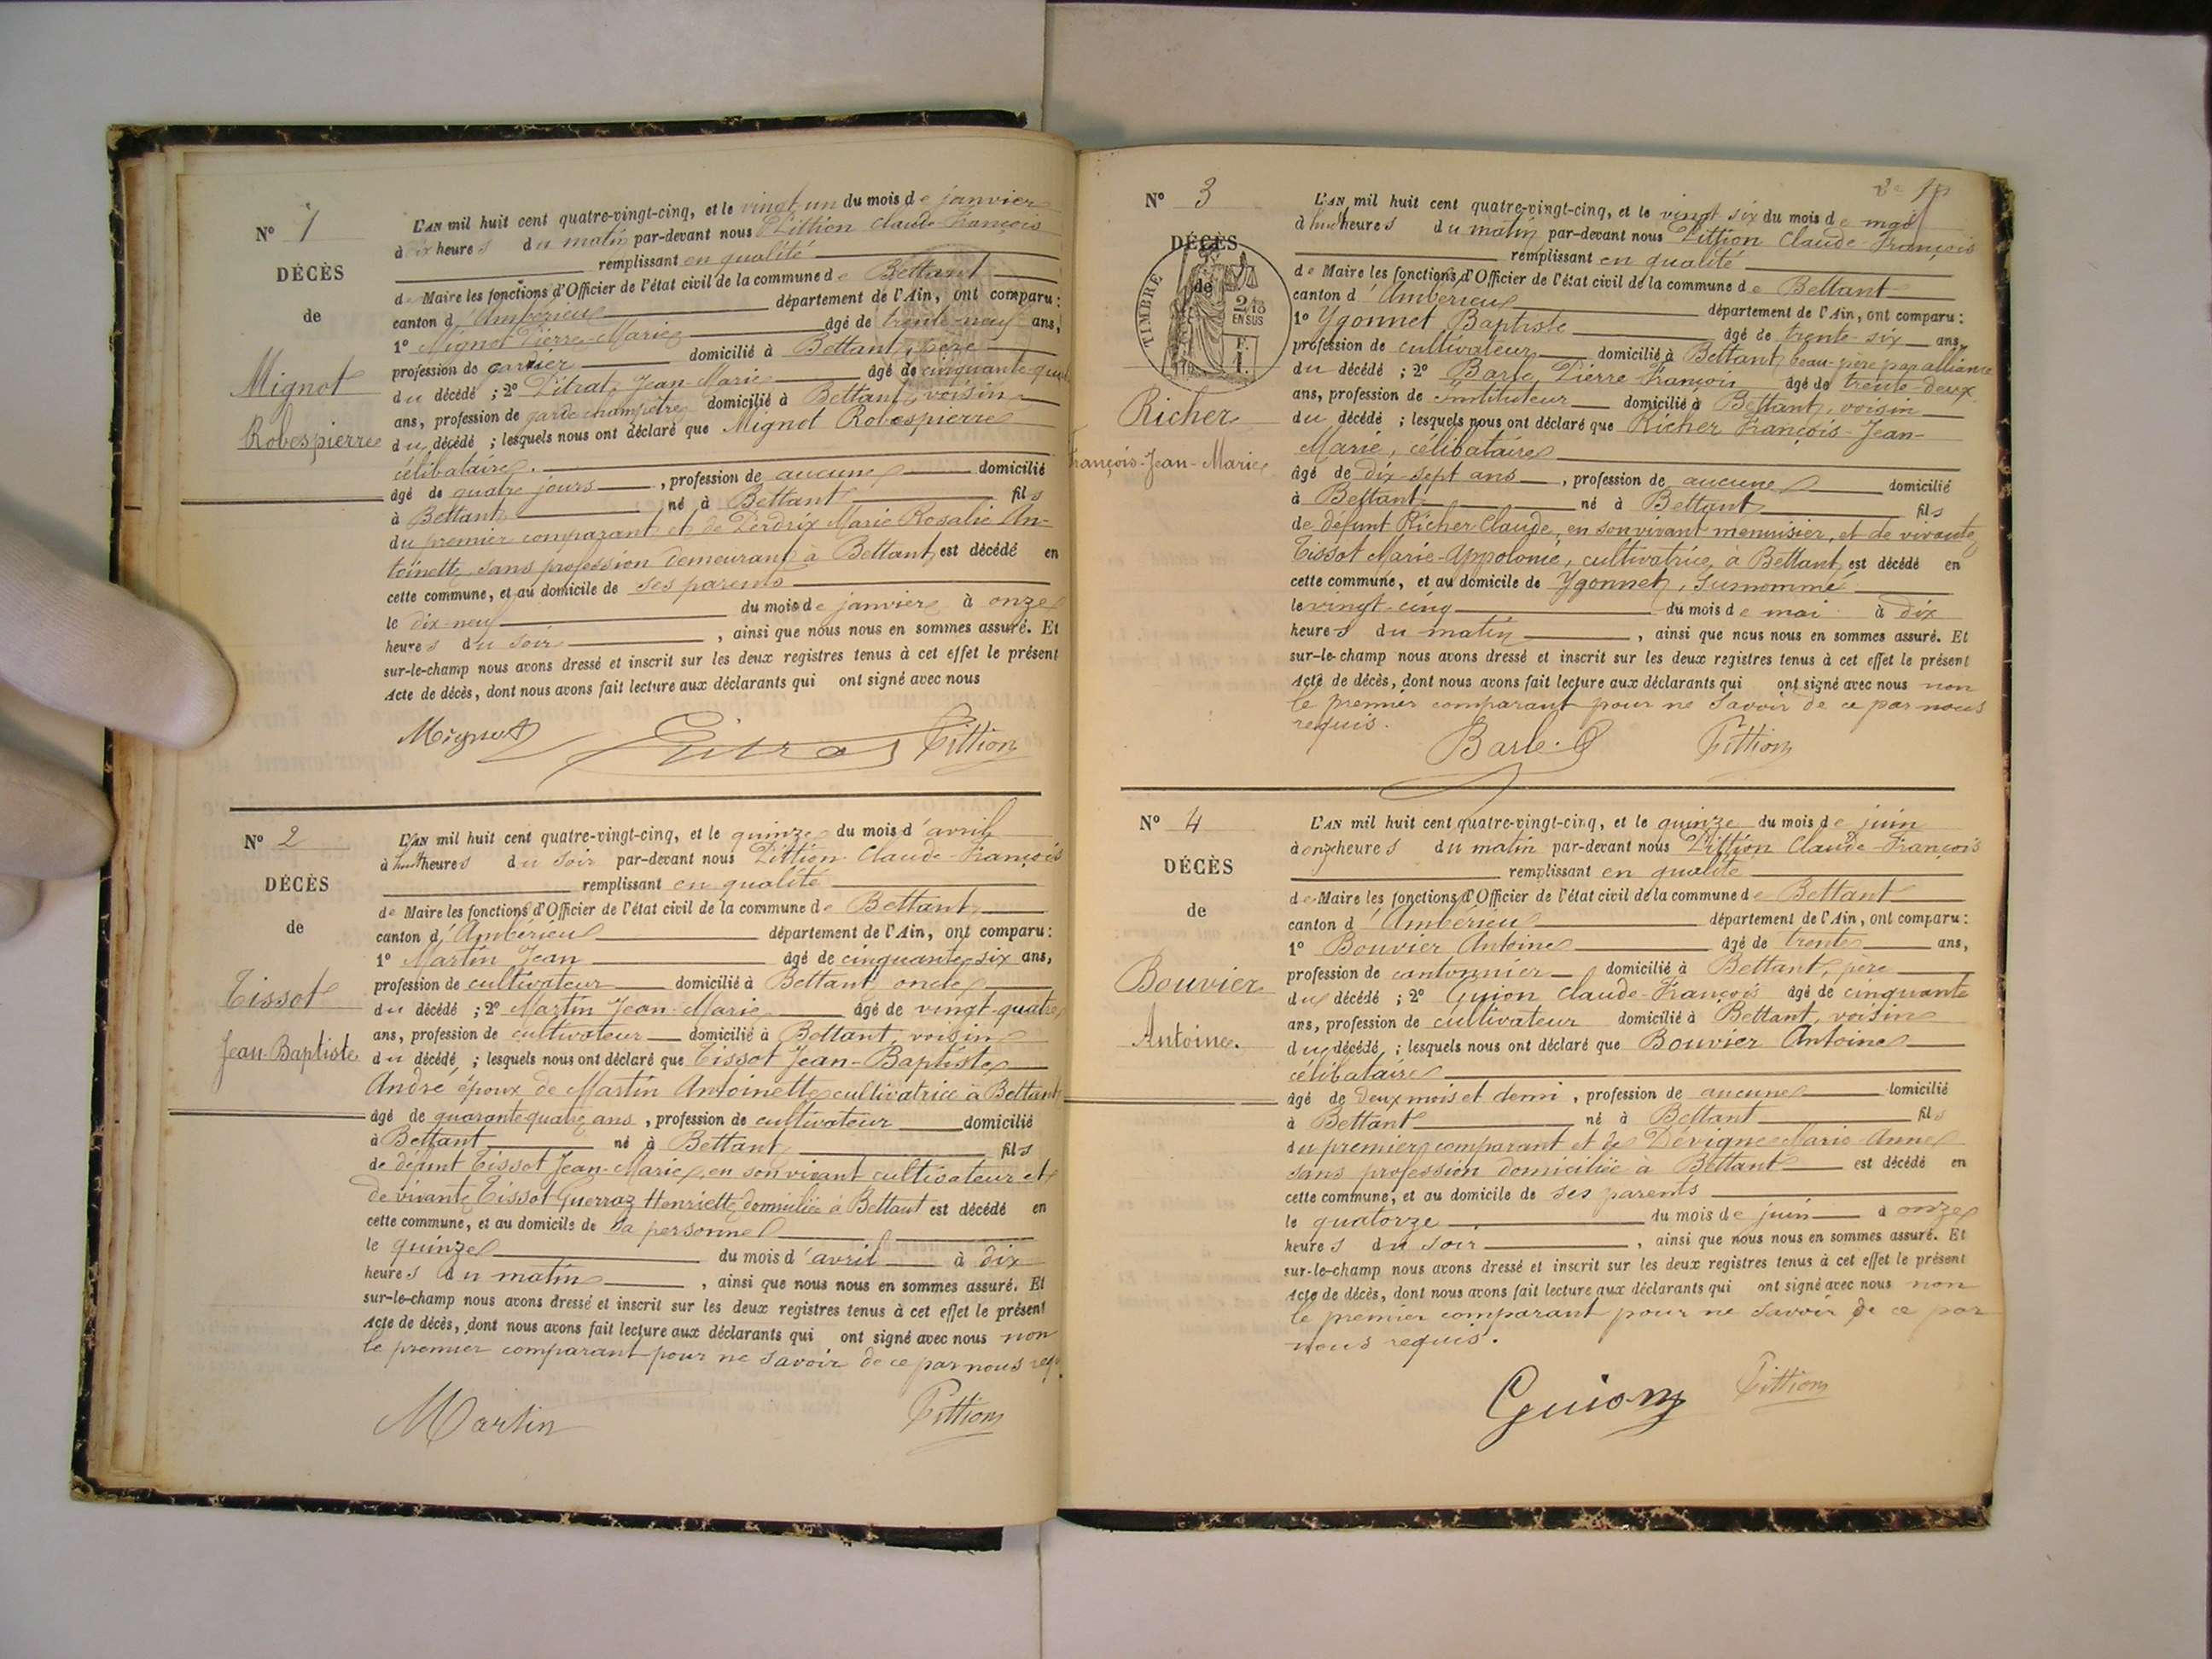 N° 1
DÉCÈS
de
Mignot
Robespierre
L'AN mil huit cent quatre-vingt-cinq, et le vingt un du mois de janvier
à dix heures du matin par-devant nous Pittion Claude-François
remplissant en qualité
de Maire les fonctions d'Officier de l'état civil de la commune de Bettant
canton d'Ambérieu département de l'Ain, ont comparu :
1° Mignot Pierre-Marie âgé de trente-neuf ans,
profession de cardier domicilié à Bettant, père
du décédé ; 2° Pitrat Jean-Marie âgé de cinquante-quatre
ans, profession de garde champêtre domicilié à Bettant, voisin
du décédé ; lesquels nous ont déclaré que Mignot Robespierre
célibataire.
âgé de quatre jours, profession de aucune domicilié
à Bettant né à Bettant fils
du premier comparant et de Perdrix Marie Rosalie An-
toinette sans profession demeurant à Bettant est décédé en
cette commune, et au domicile de ses parents
le dix-neuf du mois de janvier à onze
heures du soir, ainsi que nous nous en sommes assuré. Et
sur-le-champ nous avons dressé et inscrit sur les deux registres tenus à cet effet le présent
Acte de décès, dont nous avons fait lecture aux déclarants qui ont signé avec nous
Mignot Pitrat Pittion
N° 2
DÉCÈS
de
Tissot
Jean-Baptiste
L'AN mil huit cent quatre-vingt-cinq, et le quinze du mois d'avril
à huit heures du soir par-devant nous Pittion Claude-François
remplissant en qualité
de Maire les fonctions d'Officier de l'état civil de la commune de Bettant
canton d'Ambérieu département de l'Ain, ont comparu :
1° Martin Jean âgé de cinquante six ans,
profession de cultivateur domicilié à Bettant, oncle
du décédé ; 2° Martin Jean-Marie âgé de vingt-quatre
ans, profession de cultivateur domicilié à Bettant, voisin
du décédé ; lesquels nous ont déclaré que Tissot Jean-Baptiste
André époux de Martin Antoinette cultivatrice à Bettant
âgé de quarante quatre ans, profession de cultivateur domicilié
à Bettant né à Bettant fils
de défunt Tissot Jean-Marie, en son vivant cultivateur et
de vivante Tissot Guerraz Henriette domiciliée à Bettant est décédé en
cette commune, et au domicile de sa personnel
le quinze du mois d'avril à dix
heures du matin, ainsi que nous nous en sommes assuré. Et
sur-le-champ nous avons dressé et inscrit sur les deux registres tenus à cet effet le présent
Acte de décès, dont nous avons fait lecture aux déclarants qui ont signé avec nous non
le premier comparant pour ne savoir de ce par nous req.
Martin Pittion
N° 3
DÉCÈS
de
TIMBRE
2/10
EN SUS
F.
1.
Richer
François-Jean-Marie
L'AN mil huit cent quatre-vingt-cinq, et le vingt six du mois de mai
à huit heures du matin par-devant nous Pittion Claude-François
remplissant en qualité
de Maire les fonctions d'Officier de l'état civil de la commune de Bettant
canton d'Ambérieu département de l'Ain, ont comparu :
1° Ygonnet Baptiste âgé de trente-six ans,
profession de cultivateur domicilié à Bettant beau-père par alliance
du décédé ; 2° Barle Pierre-François âgé de trente-deux
ans, profession de Instituteur domicilié à Bettant, voisin
du décédé ; lesquels nous ont déclaré que Richer François-Jean-
Marie, célibataire
âgé de dix-sept ans, profession de aucune domicilié
à Bettant né à Bettant fils
de défunt Richer Claude, en son vivant menuisier, et de vivante
Tissot Marie-Appolonie, cultivatrice, à Bettant est décédé en
cette commune, et au domicile de Ygonnet, surnommé
le vingt-cinq du mois de mai à dix
heures du matin, ainsi que nous nous en sommes assuré. Et
sur-le-champ nous avons dressé et inscrit sur les deux registres tenus à cet effet le présent
Acte de décès, dont nous avons fait lecture aux déclarants qui ont signé avec nous non
le premier comparant pour ne savoir de ce par nous
requis.
Barle Pittion
N° 4
DÉCÈS
de
Bouvier
Antoine.
L'AN mil huit cent quatre-vingt-cinq, et le quinze du mois de juin
à onze heures du matin par-devant nous Pittion Claude-François
remplissant en qualité
de Maire les fonctions d'Officier de l'état civil de la commune de Bettant
canton d'Ambérieu département de l'Ain, ont comparu :
1° Bouvier Antoine âgé de trente ans,
profession de cantonnier domicilié à Bettant, père
du décédé ; 2° Guion Claude-François âgé de cinquante
ans, profession de cultivateur domicilié à Bettant, voisin
du décédé ; lesquels nous ont déclaré que Bouvier Antoine
célibataire
âgé de deux mois et demi, profession de aucune domicilié
à Bettant né à Bettant fils
du premier comparant et de Dévigne Marie-Anne
sans profession domiciliée à Bettant est décédé en
cette commune, et au domicile de ses parents
le quatorze du mois de juin à onze
heures du soir, ainsi que nous nous en sommes assuré. Et
sur-le-champ nous avons dressé et inscrit sur les deux registres tenus à cet effet le présent
Acte de décès, dont nous avons fait lecture aux déclarants qui ont signé avec nous non
le premier comparant pour ne savoir de ce par
nous requis.
Guion Pittion